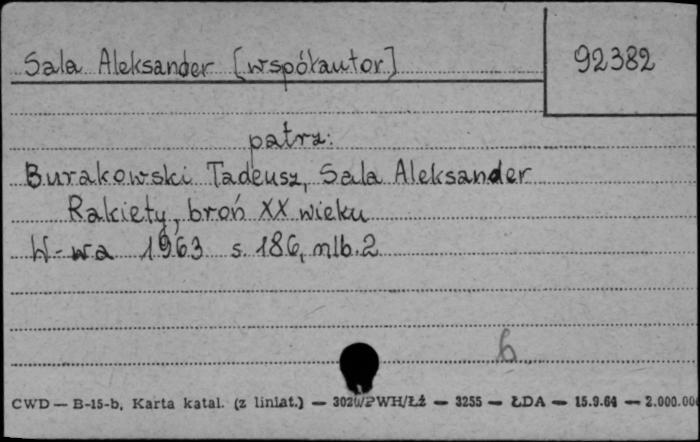 Sala Aleksander [współautor]
92382
patrz:
Burakowski Tadeusz, Sala Aleksander
Rakiety, broń XX wieku
W-wa 1963 s. 186, nlb. 2
6
CWD — B-15-b, Karta katal. (z liniat.) — 3020/PWH/Łż — 3255 — ŁDA — 15.9.64 — 2.000.000